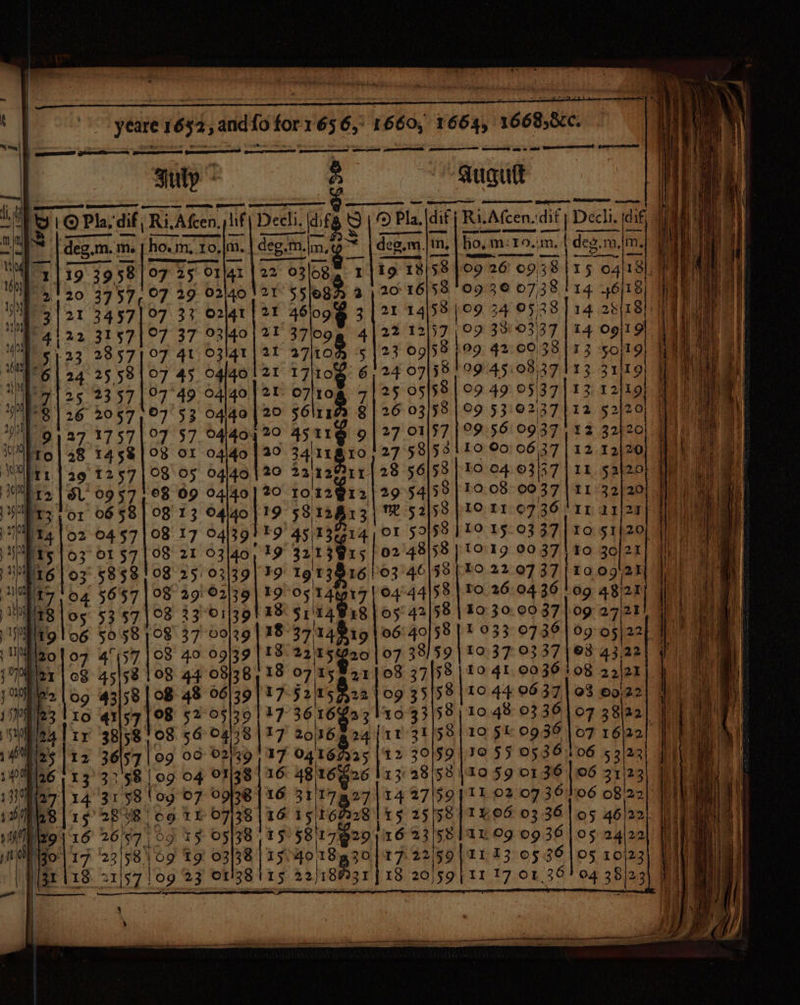 yeare 1652, and ſo for 1656, 1660, 1664, 1668, &c.
July Auguſt
☉ Pla, dif Ri, Aſcen, dif Decli. dif ☉ Pla. dif Ri. Aſcen. dif Decli. dif
deg.m. m. ho. m. 10, m. deg.m. m. deg.m. m. ho, m: 10. m. deg.m. m.
1 19 39 58 07 25 01 41 22 03 08 1 19 18 58 09 26 09 38 15 04 18
2 20 37 57 07 29 02 40 21 55 08 2 20 16 58 09 30 07 38 14 46 18
3 21 34 57 07 33 02 41 21 46 09 3 21 14 58 09 34 05 38 14 28 18
4 22 31 57 07 37 03 40 21 37 09 4 22 12 57 09 38 03 37 14 09 19
5 23 28 57 07 41 03 41 21 27 10 5 23 09 58 09 42 00 38 13 50 19
6 24 25 58 07 45 04 40 21 17 10 6 24 07 58 09 45 08 37 13 31 19
7 25 23 57 07 49 04 40 21 07 10 7 25 05 58 09 49 05 37 13 12 19
8 26 20 57 07 53 04 40 20 56 11 8 26 03 58 09 53 02 37 12 52 20
9 27 17 57 07 57 04 40 20 45 11 9 27 01 57 09 56 09 37 12 32 20
10 28 14 58 08 01 04 40 20 34 11 10 27 58 58 10 00 06 37 12 12 20
11 29 12 57 08 05 04 40 20 22 12 11 28 56 58 10 04 03 37 11 52 20
12 ♌ 09 57 08 09 04 40 20 10 12 12 29 54 58 10 08 00 37 11 32 20
13 01 06 58 08 13 04 40 19 58 12 13 ♍ 52 58 10 11 07 36 11 11 21
14 02 04 57 08 17 04 39 19 45 13 14 01 50 58 10 15 03 37 10 51 20
15 03 01 57 08 21 03 40 19 32 13 15 02 48 58 10 19 00 37 10 30 21
16 03 58 58 08 25 03 39 19 19 13 16 03 46 58 10 22 07 37 10 09 21
17 04 56 57 08 29 02 39 19 05 14 17 04 44 58 10 26 04 36 09 48 21
18 05 53 57 08 33 01 39 18 51 14 18 05 42 58 10 30 00 37 09 27 21
19 06 50 58 08 37 00 39 18 37 14 19 06 40 58 1 033 07 36 09 05 22
20 07 4 57 08 40 09 39 18 22 15 20 07 38 59 10 37 03 37 08 43 22
21 08 45 58 08 44 08 38 18 07 15 21 08 37 58 10 41 00 36 08 22 21
22 09 43 58 08 48 06 39 17 52 15 22 09 35 58 10 44 06 37 08 00 22
23 10 41 57 08 52 05 39 17 36 16 23 10 33 58 10 48 03 36 07 38 22
24 11 38 58 08 56 04 38 17 20 16 24 11 31 58 10 51 09 36 07 16 22
25 12 36 57 09 00 02 39 17 04 16 25 12 30 59 10 55 05 36 06 53 23
26 13 33 58 09 04 01 38 16 48 16 26 13 28 58 10 59 01 36 06 31 23
27 14 31 58 09 07 09 38 16 31 17 27 14 27 59 11 02 07 36 06 08 22
28 15 28 58 09 11 07 38 16 15 16 28 15 25 58 11 06 03 36 05 46 22
29 16 26 57 09 15 05 38 15 58 17 29 16 23 58 11 09 09 36 05 24 22
30 17 23 58 09 19 03 38 15 40 18 30 17 22 59 11 13 05 36 05 10 23
31 18 21 57 09 23 01 38 15 22 18 31 18 20 59 11 17 01 36 04 38 23